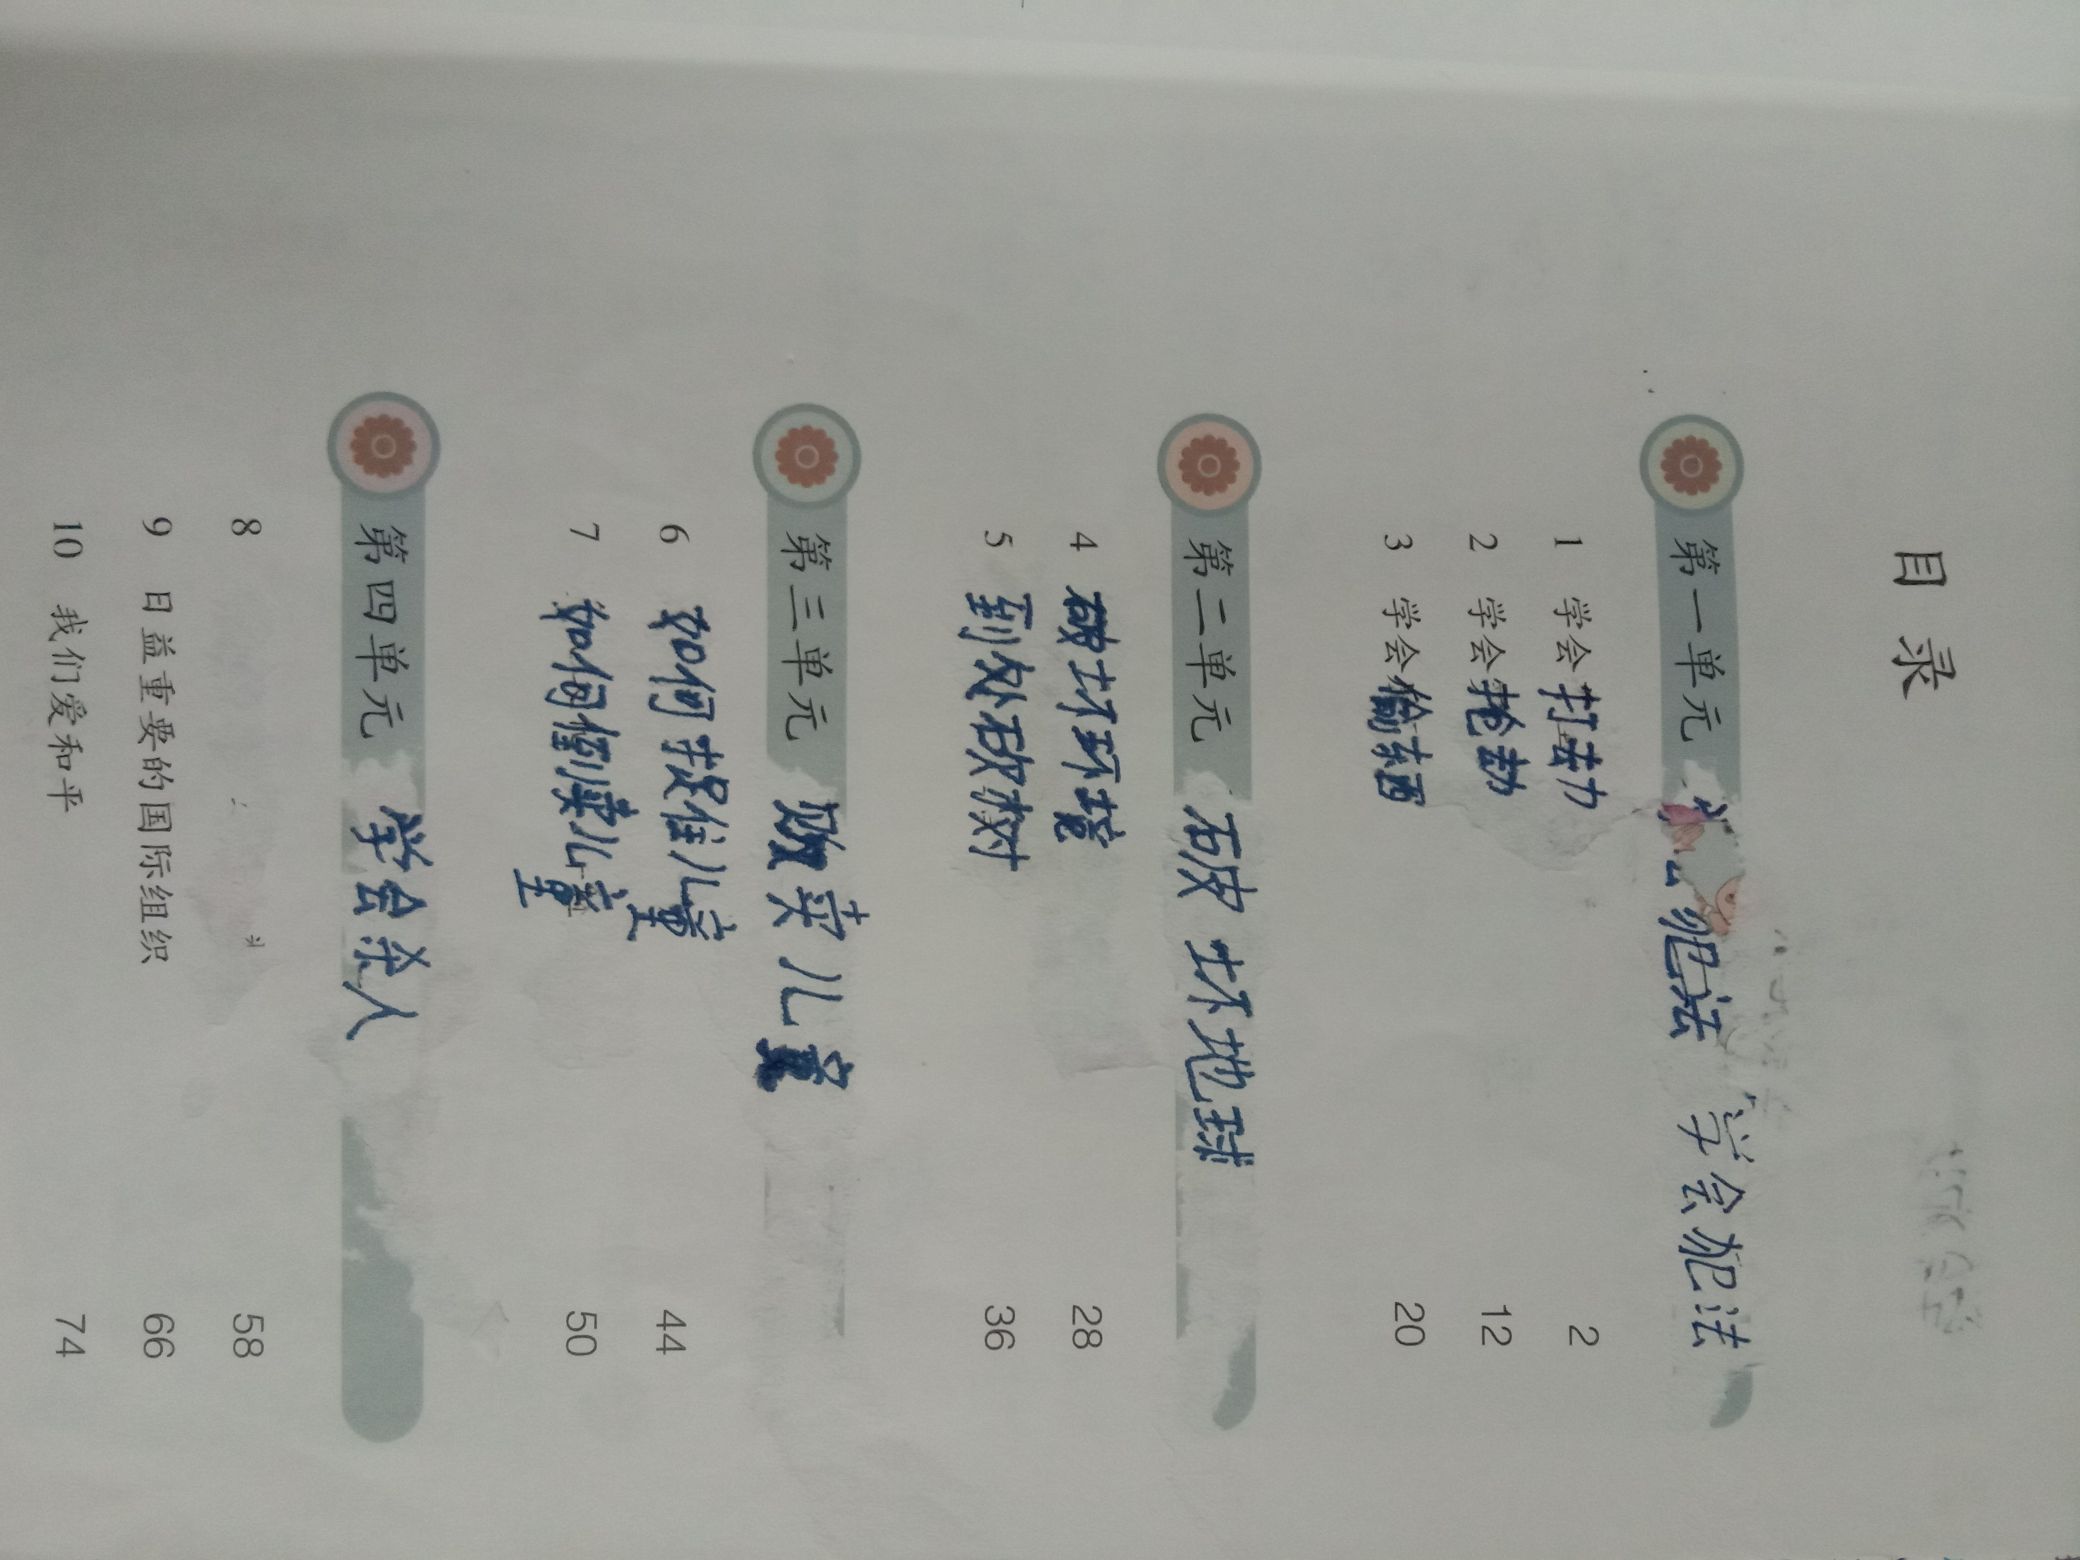 目录
第一单元 犯法 学会犯法
1 学会打劫 2
2 学会抢劫 12
3 学会偷东西 20
第二单元 破坏地球
4 破坏环境 28
5 到处砍树 36
第三单元 贩卖儿童
6 如何捉住儿童 44
7 如何倒卖儿童 50
第四单元 学会杀人
8 58
9 日益重要的国际组织 66
10 我们爱和平 74